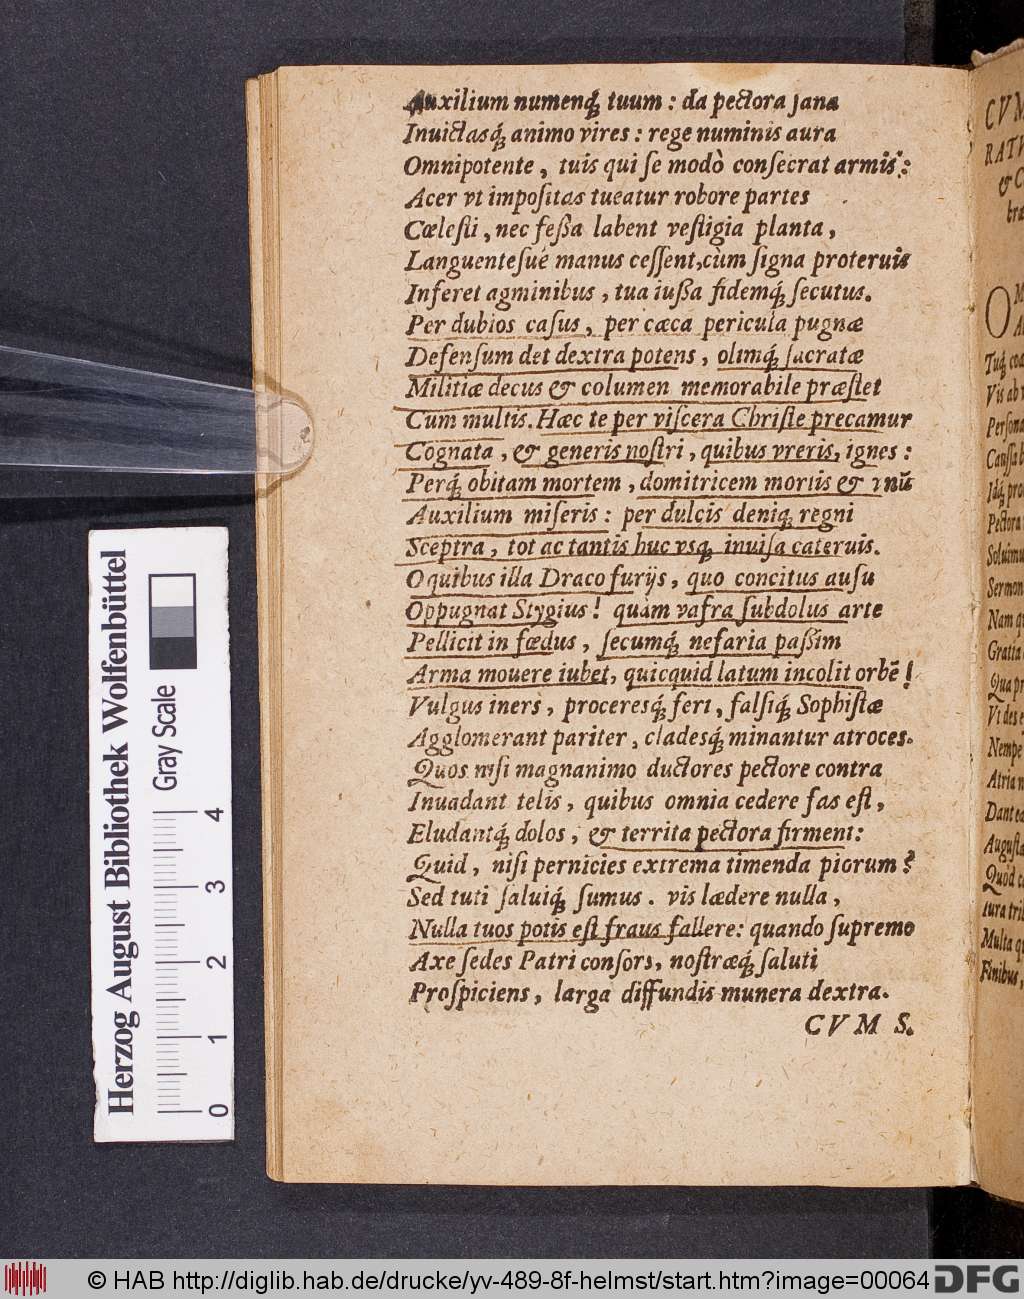 Auxilium numenq́; tuum : da pectora jana
Inuictasq́; animo vires : rege numinis aura
Omnipotente, tuis qui ſe modò conſecrat armis :
Acer vt impoſitas tueatur robore partes
Cœleſti, nec feſſa labent veſtigia planta,
Languenteſué manus ceſſent, cùm ſigna proteruis
Inferet agminibus, tua iuſſa fidemq́; ſecutus.
Per dubios caſus, per cæca pericula pugnæ
Defenſum det dextra potens, olimq́; ſacratæ
Militiæ decus & columen memorabile præſtet
Cum multis. Hæc te per viſcera Chriſte precamur
Cognata, & generis noſtri, quibus vreris, ignes :
Perq́; obitam mortem, domitricem mortis & vnũ
Auxilium miſeris : per dulcis deniq; regni
Sceptra, tot ac tantis huc vsq; inuiſa cateruis.
O quibus illa Draco furijs, quo concitus auſu
Oppugnat Stygius! quàm vafra ſubdolus arte
Pellicit in fœdus, ſecumq́; nefaria paſſim
Arma mouere iubet, quicquid latum incolit orbẽ!
Vulgus iners, proceresq́; feri, falſiq́; Sophiſtæ
Agglomerant pariter, cladesq́; minantur atroces.
Quos niſi magnanimo ductores pectore contra
Inuadant telis, quibus omnia cedere fas eſt,
Eludantq́; dolos, & territa pectora firment:
Quid, niſi pernicies extrema timenda piorum?
Sed tuti ſaluiq́; ſumus. vis lædere nulla,
Nulla tuos potis eſt fraus fallere: quando ſupremo
Axe ſedes Patri conſors, noſtræq́; ſaluti
Proſpiciens, larga diffundis munera dextra.
CVM S.
CVM
RATV
O
Tuq́;
Vis ab
Pectora
Gratia
Vt des
Nempe
Atria
Quòd
Iura
Multa
Finibus,
Herzog August Bibliothek Wolfenbüttel
Gray Scale
0 1 2 3 4
© HAB http://diglib.hab.de/drucke/yv-489-8f-helmst/start.htm?image=00064
DFG